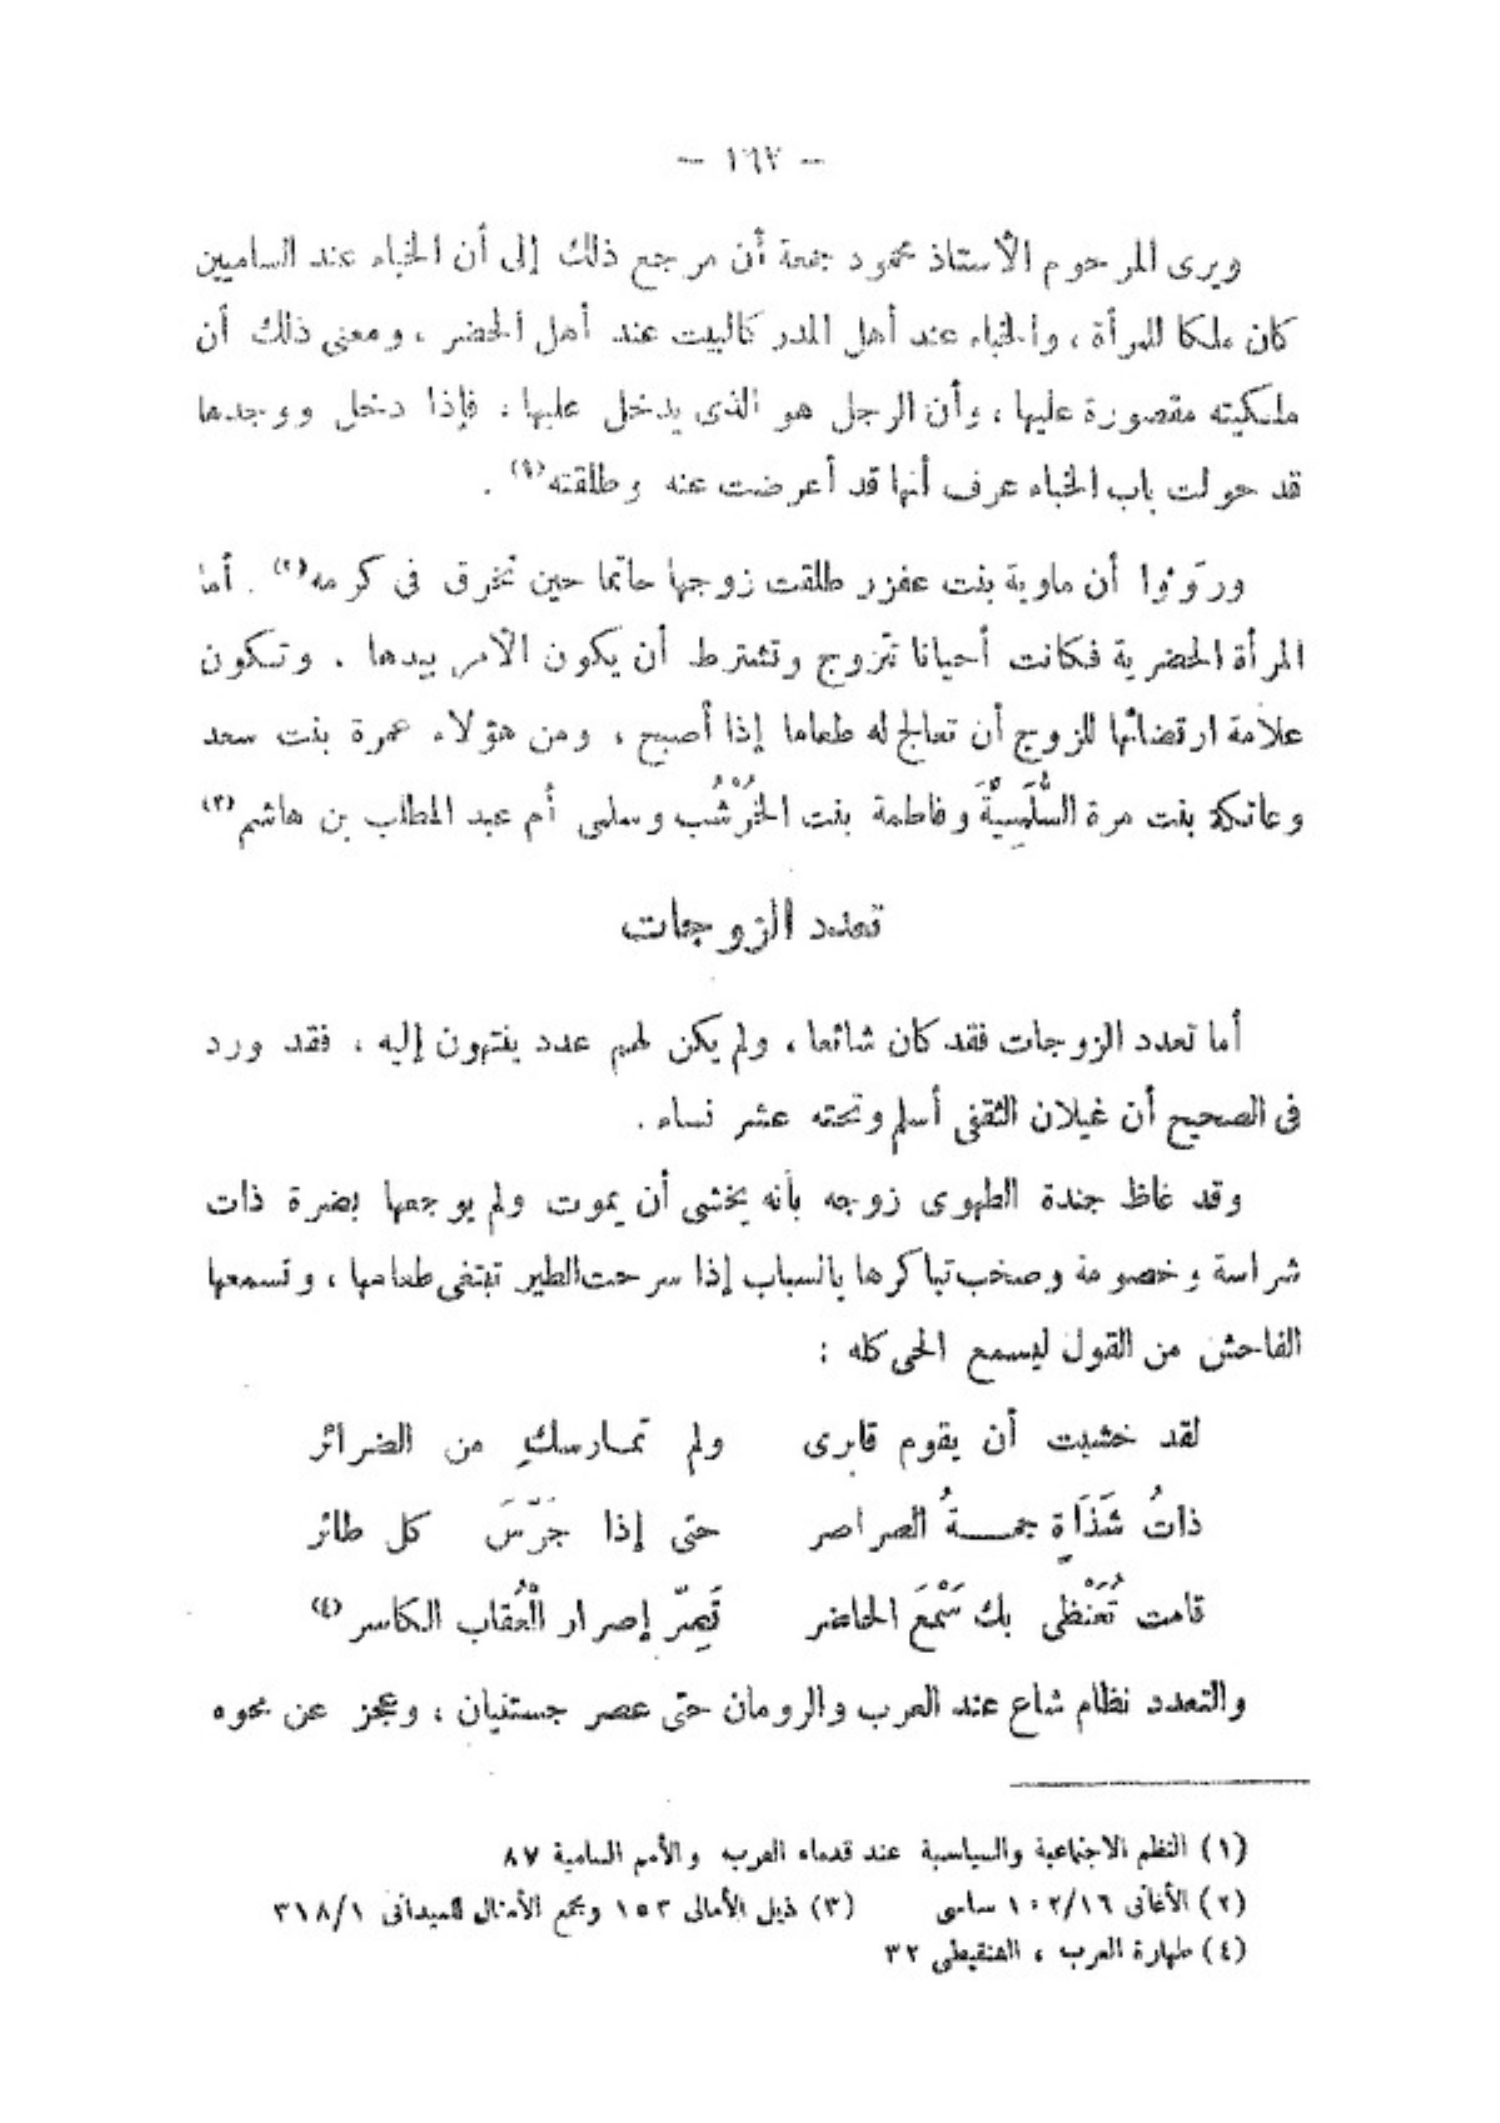 — ١٦٧ —
ويرى المرحوم الأستاذ محمود جمعة أن مرجع ذلك إلى أن الخباء عند الساميين
كان ملكا للمرأة ، والخباء عند أهل المدر كالبيت عند أهل الحضر ، ومعنى ذلك أن
ملكيته مقصورة عليها ، وأن الرجل هو الذى يدخل عليها ، فإذا دخل ووجدها
قد حولت باب الخباء عرف أنها قد أعرضت عنه وطلقته(١) .
وروَوْا أن ماوية بنت عفزر طلقت زوجها حاتما حين تخرق فى كرمه(٢) . أما
المرأة الحضرية فكانت أحيانا تتزوج وتشترط أن يكون الأمر بيدها . وتكون
علامة ارتضائها للزوج أن تعالج له طعاما إذا أصبح ، ومن هؤلاء عمرة بنت سعد
وعاتكة بنت مرة السُّلَمِيَّة وفاطمة بنت الخُرْشُب وسلمى أم عبد المطلب بن هاشم(٣)
تعدد الزوجات
أما تعدد الزوجات فقد كان شائعا ، ولم يكن لهم عدد ينتهون إليه ، فقد ورد
فى الصحيح أن غيلان الثقفى أسلم وتحته عشر نساء .
وقد غاظ جندة الطهوى زوجه بأنه يخشى أن يموت ولم يوجعها بضرة ذات
شراسة وخصومة وصخب تباكرها بالسباب إذا سرحت الطير تبتغى طعامها ، وتسمعها
الفاحش من القول ليسمع الحى كله :
لقد خشيت أن يقوم قابرى ولم تمارسكِ من الضرائر
ذاتُ شَذَاةٍ جمـــةُ الصراصر حتى إذا جَرَّسَ كل طائر
قامت تُعَنْظِى بك سَمْعَ الحاضر تَصِرّ إصرار الْعُقاب الكاسر(٤)
والتعدد نظام شاع عند العرب والرومان حتى عصر جستنيان ، وعجز عن محوه
(١) النظم الاجتماعية والسياسية عند قدماء العرب والأمم السامية ٨٧
(٢) الأغانى ١٠٢/١٦ ساسى (٣) ذيل الأمالى ١٥٣ ومجمع الأمثال للميدانى ٣١٨/١
(٤) طهارة العرب ، الشنقيطى ٣٢